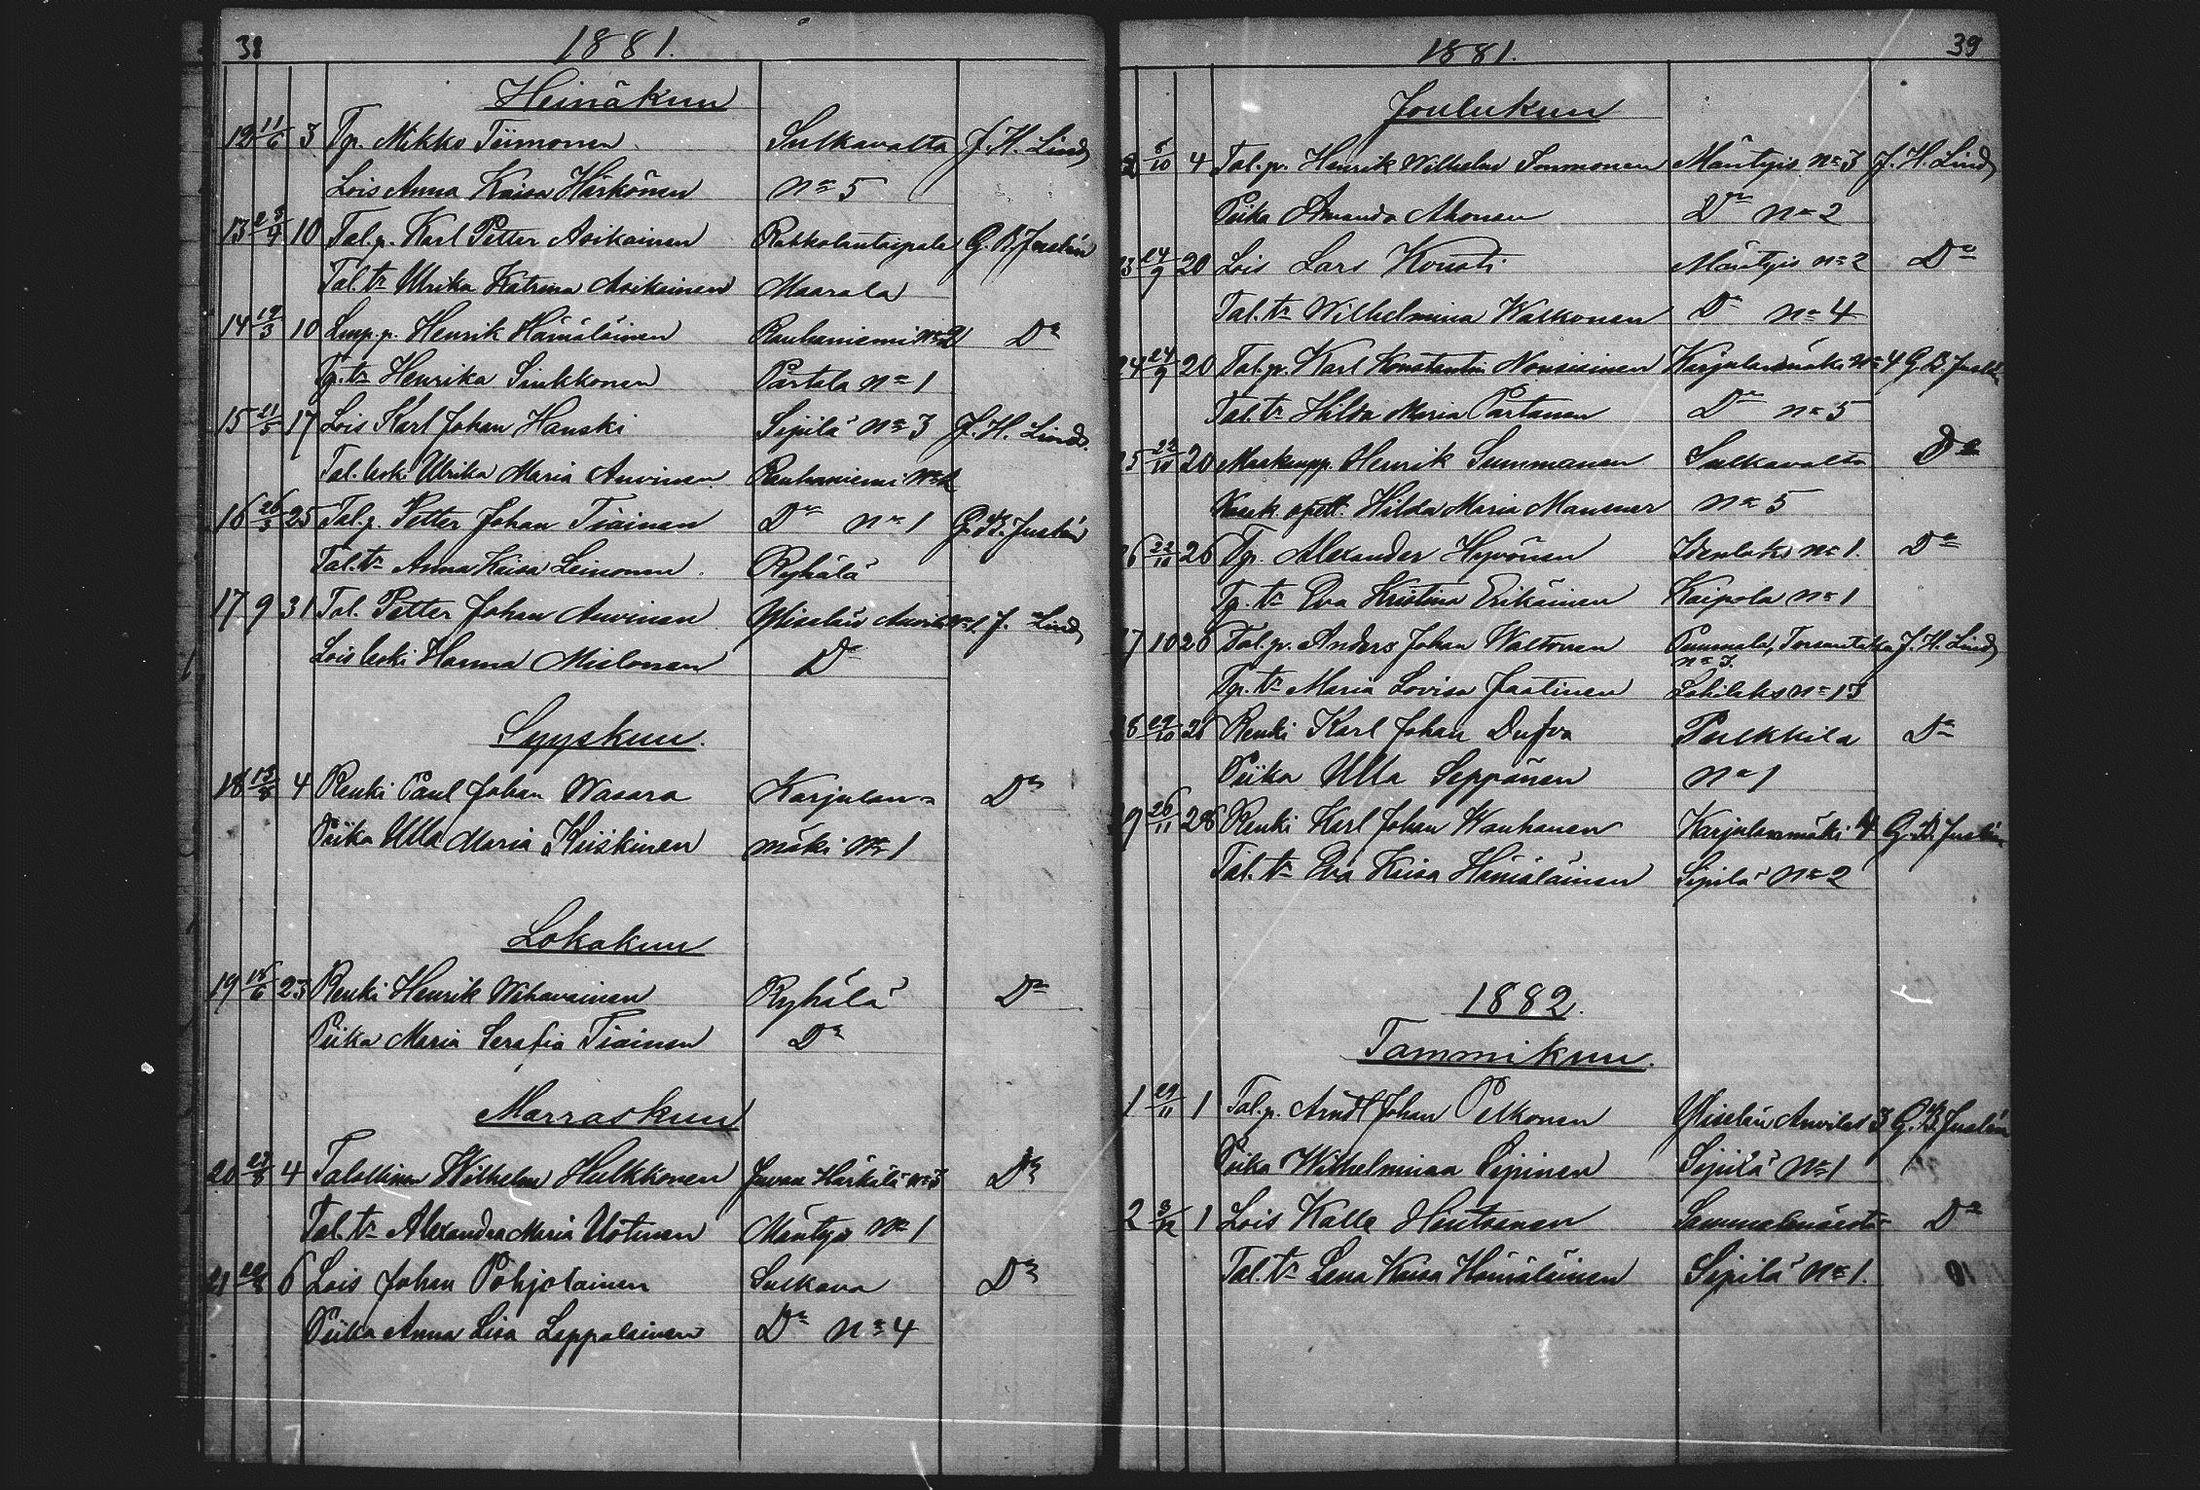 38
1881.
Heinäkuu
12 11/6 3 Tp. Mikko Tiimonen Sulkavalta J. H. Lind
Lois Anna Kaisa Härkönen No 5
13 10 Tal.p. Karl Petter Asikainen G. B. Juslén
Tal. tr Ulrika Katrina Asikainen Maarala
14 19/3 10 Lmp. p. Henrik Hämäläinen Rauhaniemi No 2 Do
Tp. tr Henrika Sinkkonen Partala No 1
15 21/5 17 Lois Karl Johan Hanski Sipilä No 3 J. H. Lind.
Tal. leski Ulrika Maria Auvinen Rauhaniemi No
16 26/5 25 Tal. p. Petter Johan Tiainen Do No 1 G. B. Juslén
Tal. tr Anna Kaisa Leinonen Ryhälä
17 9 31 Tal. Petter Johan Auvinen No 1. J. Lind
Lois leski Hanna Mielonen Do
Syyskuu.
18 4 Renki Paul Johan Wasara Karjulan= Do
Piika Ulla Maria Kiiskinen mäki No 1
Lokakuu
19 23 Renki Henrik Wihavainen Ryhälä Do
Piika Maria Serafia Tiainen Do
Marraskuu
20 4 Talollinen Wilhelm Hulkkonen Juvan Härkälä No 3 Do
Tal. tr Alexandra Maria Uotinen Mäntys No 1
21 6 Lois Johan Pohjolainen Sulkava Do
Piika Anna Lisa Leppalainen Do No 4
39
1881.
Joulukuu
2 5/10 4 Tal. p. Henrik Wilhelm Immonen Mäntyis No 3 J. H. Lind
Piika Amanda Ahonen Do No 2
3 24/9 20 Lois Lars Kousti Mäntyis No 2 Do
Tal. tr Wilhelmina Walkonen Do No 4
24 24/9 20 Tal. p. Karl Konstantin Nousiainen Karjulanmäki No 4 G. B. Juslén
Tal. tr Hilda Maria Partanen Do No 5
5 22/10 20 Henrik Summanen Sulkavalta Do
opett. Hilda Maria No 5
6 22/10 26 Tp. Alexander Hyvönen No 1. Do
Tp. tr Eva Kristina Erikäinen Kaipola No 1
7 10 26 Tal. p. Anders Johan Waltonen Puumala, J. H. Lind
Tp. tr Maria Lovisa Jaatinen Lohilaks No 13
8 29/10 26 Renki Karl Johan Dufva Pulkkila Do
Piika Ulla Seppänen No 1
9 26/11 28 Renki Karl Johan Wauhanen Karjulanmäki 4 G. B. Juslén
Tal. tr Eva Kaisa Hämäläinen Sipilä No 2
1882.
Tammikuu.
1 29/11 1 Tal. p. Johan Pelkonen 3 G. B. Juslén
Piika Wilhelmina Sipinen Sipilä No 1
2 3/12 1 Lois Kalle Do
Tal. tr Lena Kaisa Hämäläinen Sipilä No 1.